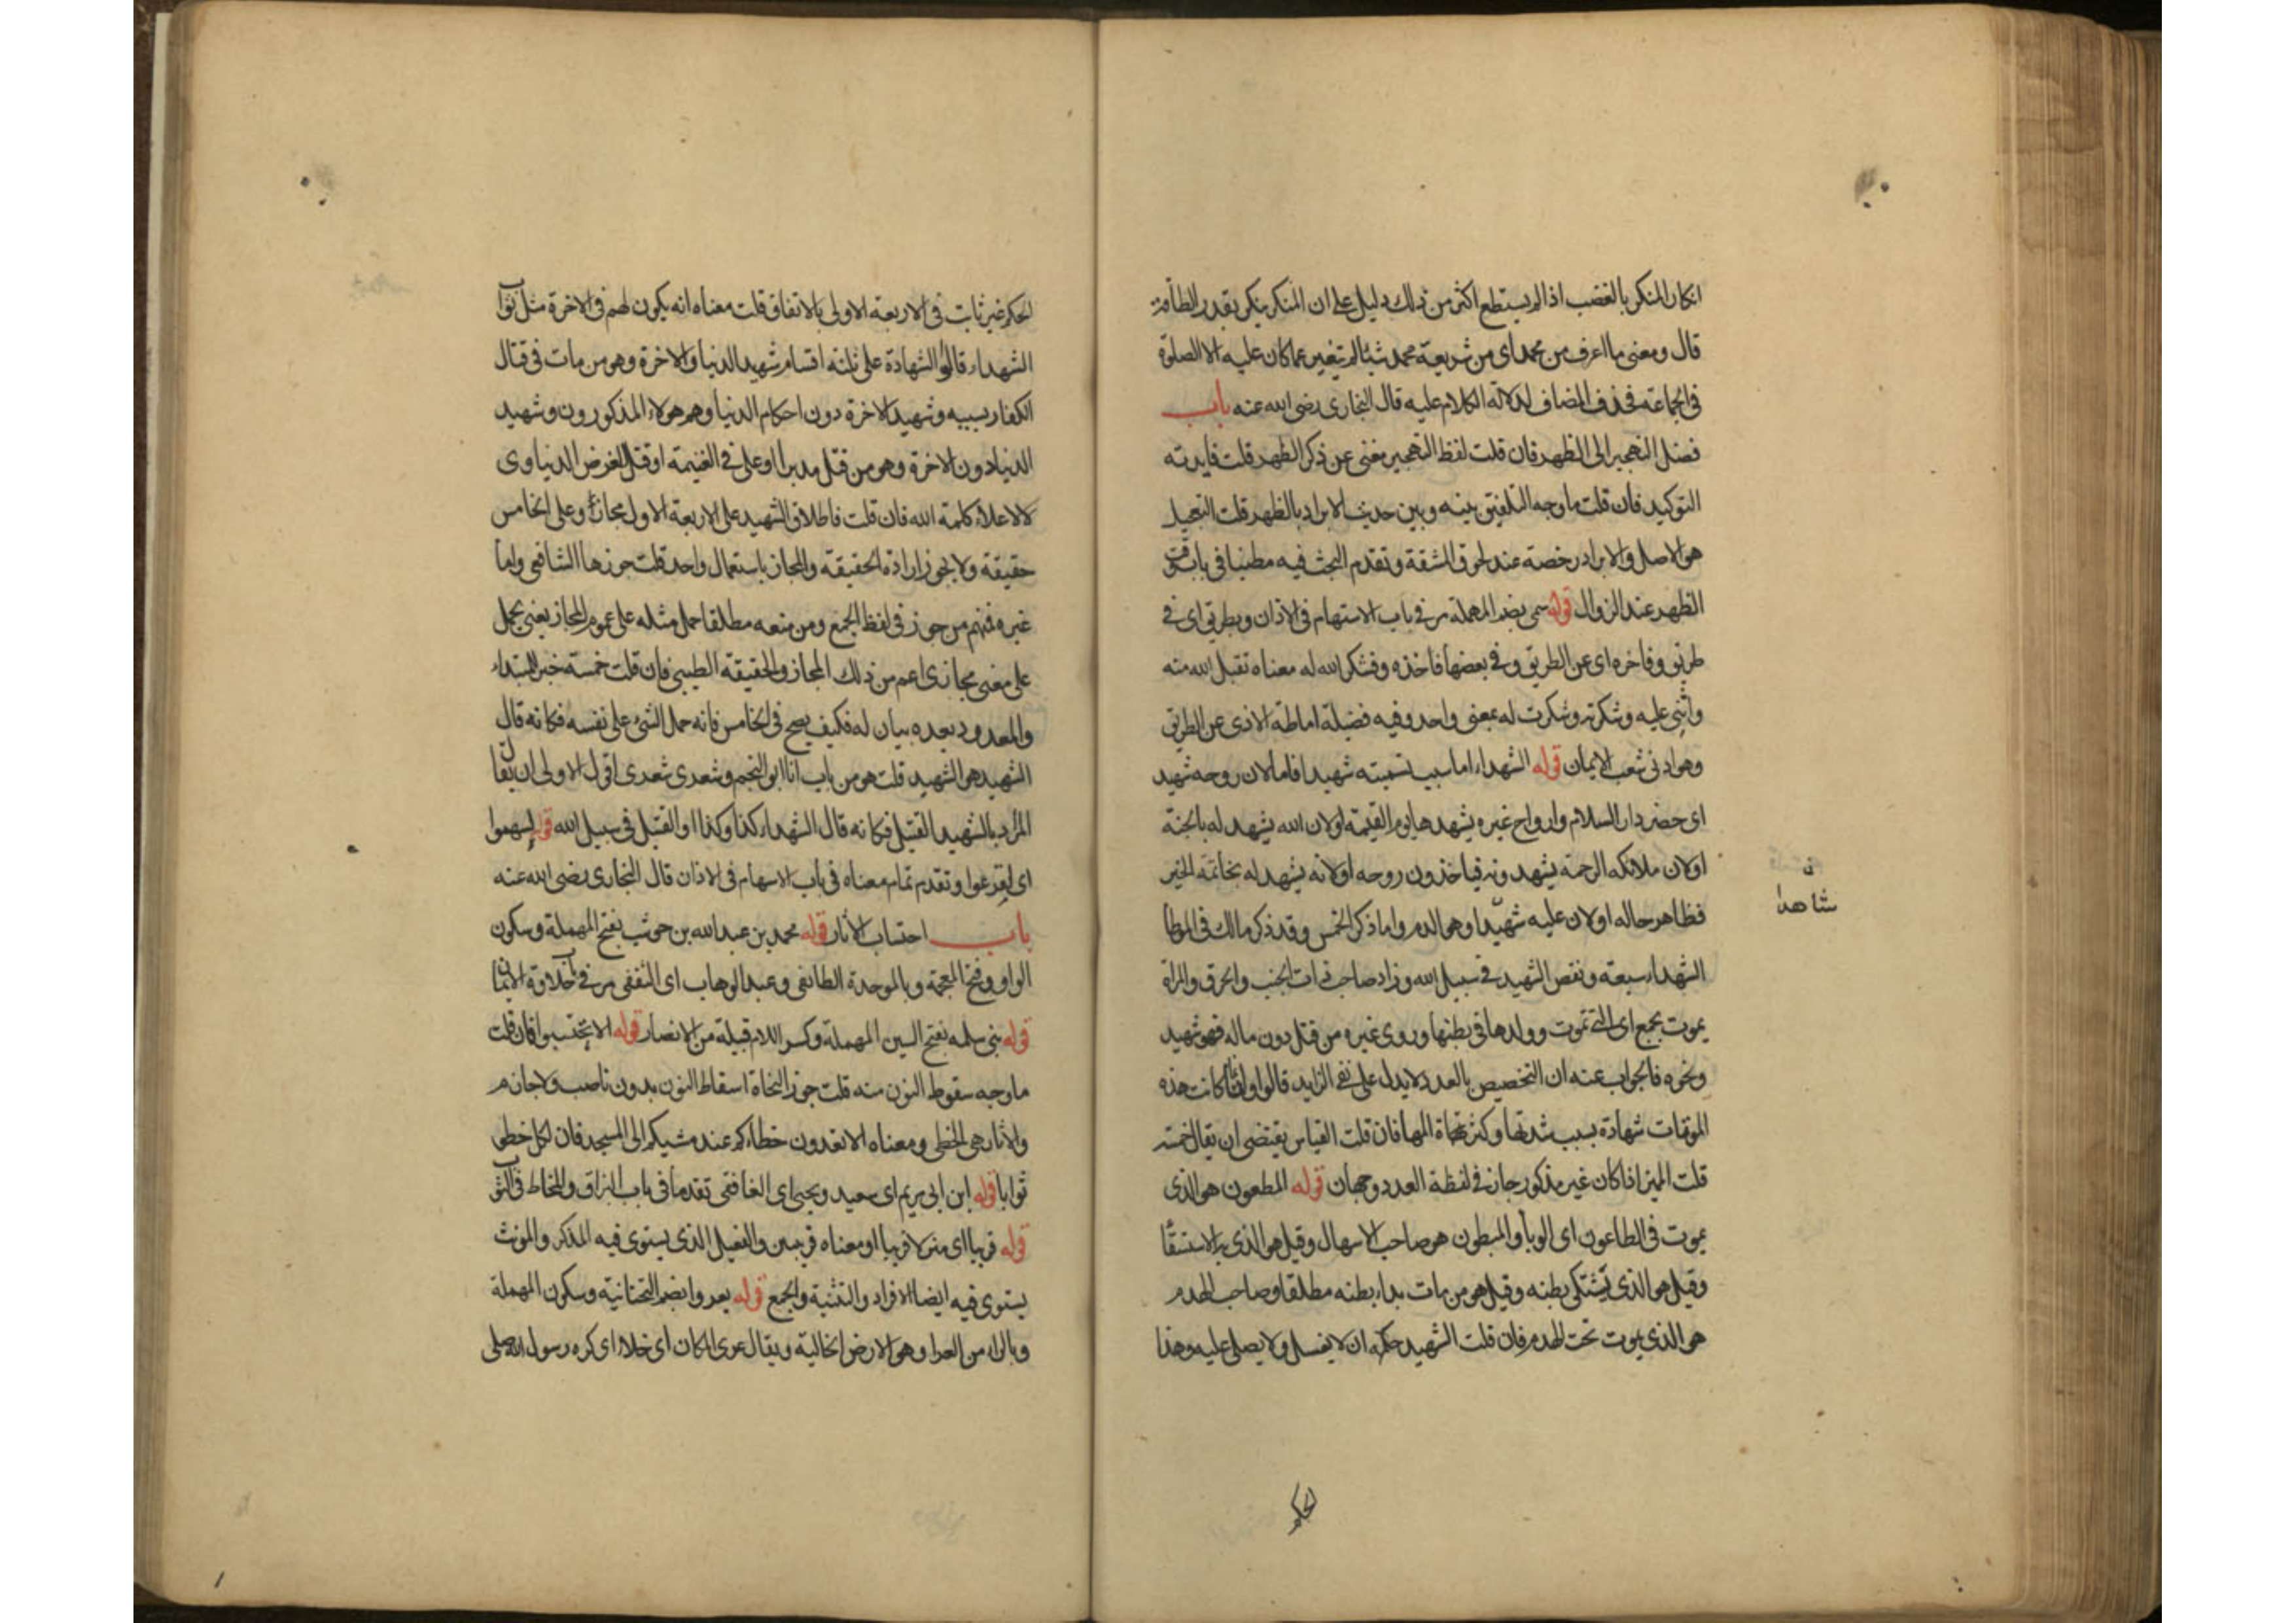 انكار المنكر بالغضب اذا لم يستطع اكثر من ذلك دليل على ان المنكر ينكر بقدر الطاقة
قال ومعنى ما اعرف من محمد اى من شريعة محمد شيئا لم يتغير عما كان عليه الا الصلوة
فى الجماعة فحذف المضاف لدلالة الكلام عليه قال البخارى رضى الله عنه باب
فضل التهجير الى الظهر فان قلت لفظ التهجير مغنى عن ذكر الظهر قلت فايدته
التوكيد فان قلت ما وجه التلفيق بينه وبين حديث الابراد بالظهر قلت التعجيل
هو الاصل والابراد رخصة عند لحوق المشقة وتقدم البحث فيه مطنبا فى باب وقت
الظهر عند الزوال قوله سمى بضم المهملة مر فى باب الاستهام فى الاذان وبطريق اى فى
طريق وفاخره اى عن الطريق وفى بعضها فاخذه وفشكر الله له معناه تقبل الله منه
واثنى عليه وشكرته وشكرت له بمعنى واحد وفيه فضيلة اماطة الاذى عن الطريق
وهو ادنى شعب الايمان قوله الشهداء اما سبب تسميته شهيدا فاما لان روحه شهيد
اى حضر دار السلام وارواح غيره يشهدها يوم القيمة او لان الله يشهد له بالجنة
او لان ملائكه الرحمة يشهدونه فياخذون روحه او لانه يشهد له بخاتمة الخير
فظاهر حاله او لان عليه شهيدا وهو الدم واما ذكر الخمس وقد ذكر مالك فى الموطأ
ن
شاهدا
الشهداء سبعة ونقص الشهيد فى سبيل الله وزاد صاحب ذات الجنب والحرق والمراة
يموت بجمع اى التى تموت وولدها فى بطنها وروى غيره من قتل دون ماله فهو شهيد
ونحوه فالجواب عنه ان التخصيص بالعدد لا يدل على نفى الزايد قالوا وانما كانت هذه
الموتات شهادة بسبب شدتها وكثرة المها فان قلت القياس يقتضى ان يقال خمسة
قلت المميز اذا كان غير مذكور جاز فى لفظة العدد وجهان قوله المطعون هو الذى
يموت فى الطاعون اى الوبأ والمبطون هو صاحب الاسهال وقيل هو الذى به الاستسقا
وقيل هو الذى يشتكى بطنه وقيل هو من مات بداء بطنه مطلقا وصاحب الهدم
هو الذى يموت تحت الهدم فان قلت الشهيد حكمه ان لا يغسل ولا يصلى عليه وهذا
الحكم
الحكم غير ثابت فى الاربعة الاولى بالاتفاق قلت معناه انه يكون لهم فى الاخرة مثل ثواب
الشهداء قالوا الشهادة على ثلثة اقسام شهيد الدنيا والاخرة وهو من مات فى قتال
الكفار بسببه وشهيد الاخرة دون احكام الدنيا وهم هولاء المذكورون وشهيد
الدنيا دون الاخرة وهو من قتل مدبرا او غل فى الغنيمة او قتل لغرض الدنياوى
لا لاعلاء كلمة الله فان قلت فاطلاق الشهيد على الاربعة الاول مجاز وعلى الخامس
حقيقة ولا يجوز ارادة الحقيقة والمجاز باستعمال واحد قلت جوزها الشافعى واما
غيره فمنهم من جوز فى لفظ الجمع ومن منعه مطلقا حمل مثله على عموم المجاز يعنى يحمل
على معنى مجازى اعم من ذلك المجاز والحقيقة الطيبى فان قلت خمسة خبر للمبتداء
والمعدود بعده بيان له فكيف يصح فى الخامس فانه حمل الشئ على نفسه فكانه قال
الشهيد هو الشهيد قلت هو من باب انا ابو النجم وشعرى شعرى اقول الاولى ان يقال
المراد بالشهيد القتيل فكانه قال الشهداء كذا وكذا والقتيل فى سبيل الله قوله ليسهموا
اى ليقرعوا وتقدم تمام معناه فى باب الاسهام فى الاذان قال البخارى رضى الله عنه
باب احتساب الاثار قوله محمد بن عبد الله بن حوشب بفتح المهملة وسكون
الواو وفتح المعجمة وبالموحدة الطائفى وعبد الوهاب اى الثقفى مر فى باب حلاوة الايمان
قوله بنى سلمه بفتح السين المهملة وكسر اللام قبيلة من الانصار قوله الا تحتسبوا فان قلت
ما وجه سقوط النون منه قلت جوز النحاة اسقاط النون بدون ناصب ولا جازم
والاثار هى الخطى ومعناه الا تعدون خطاءكم عند مشيكم الى المسجد فان لكل خطى
ثوابا قوله ابن ابى مريم اى سعيد ويحيى اى الغافقى تقدما فى باب البزاق والمخاط فى الثوب
قوله قريبا اى منزلا قريبا او معناه قريبين والفعيل الذى يستوى فيه المذكر والمونث
يستوى فيه ايضا الافراد والتثنية والجمع قوله يعروا بضم التحتانية وسكون المهملة
وبالراء من العراء وهو الارض الخالية ويقال عرى المكان اى خلا اى كره رسول الله صلى